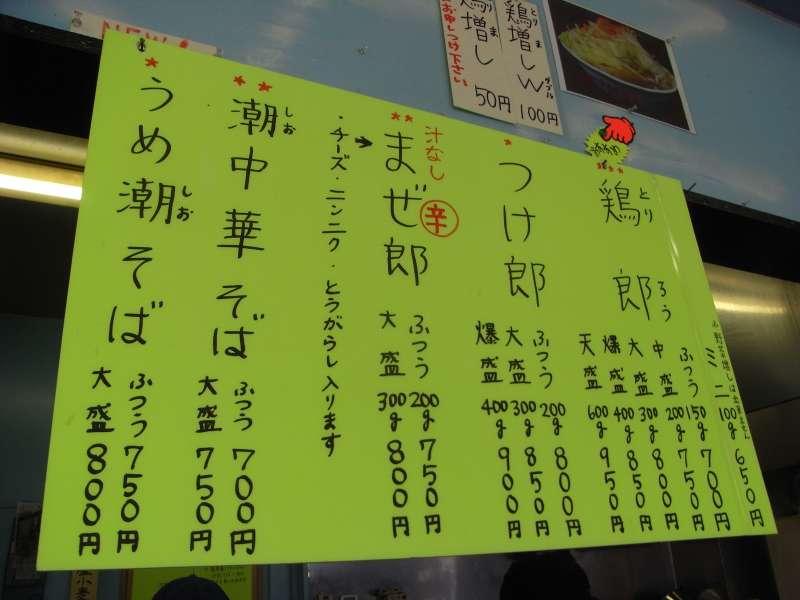 鶏増し
とりま
50円
お申しつけ下さい
鶏増しW
とりま
ダブル
100円
鶏郎
とりろう
ミニ 100g 650円
ふつう 150g 700円
中盛 200g 750円
大盛 300g 800円
爆盛 400g 850円
天盛 600g 950円
つけ郎
ふつう 200g 800円
大盛 300g 850円
爆盛 400g 900円
汁なし
まぜ郎
辛
ふつう 200g 750円
大盛 300g 800円
→・チーズ・ニンニク・とうがらし入ります
潮中華そば
しお
ふつう 700円
大盛 750円
うめ潮そば
しお
ふつう 750円
大盛 800円